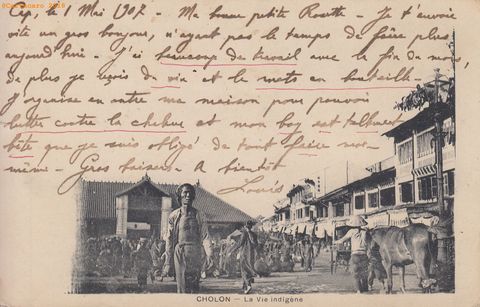 © Cparama 2016
Cap, le 1 Mai 1907. - Ma bonne petite Rosette - Je t'envoie
vite un gros bonjour, n'ayant pas le temps de faire plus
aujourd'hui. - J'ai beaucoup de travail avec la fin du mois,
de plus je reçois du vin et le mets en bouteille -
J'organise en outre ma maison pour pouvoir
lutter contre la chaleur et mon boy est tellement
bête que je suis obligé de tout faire moi-
même - Gros baisers - A bientôt
Louis
CHOLON — La Vie indigène